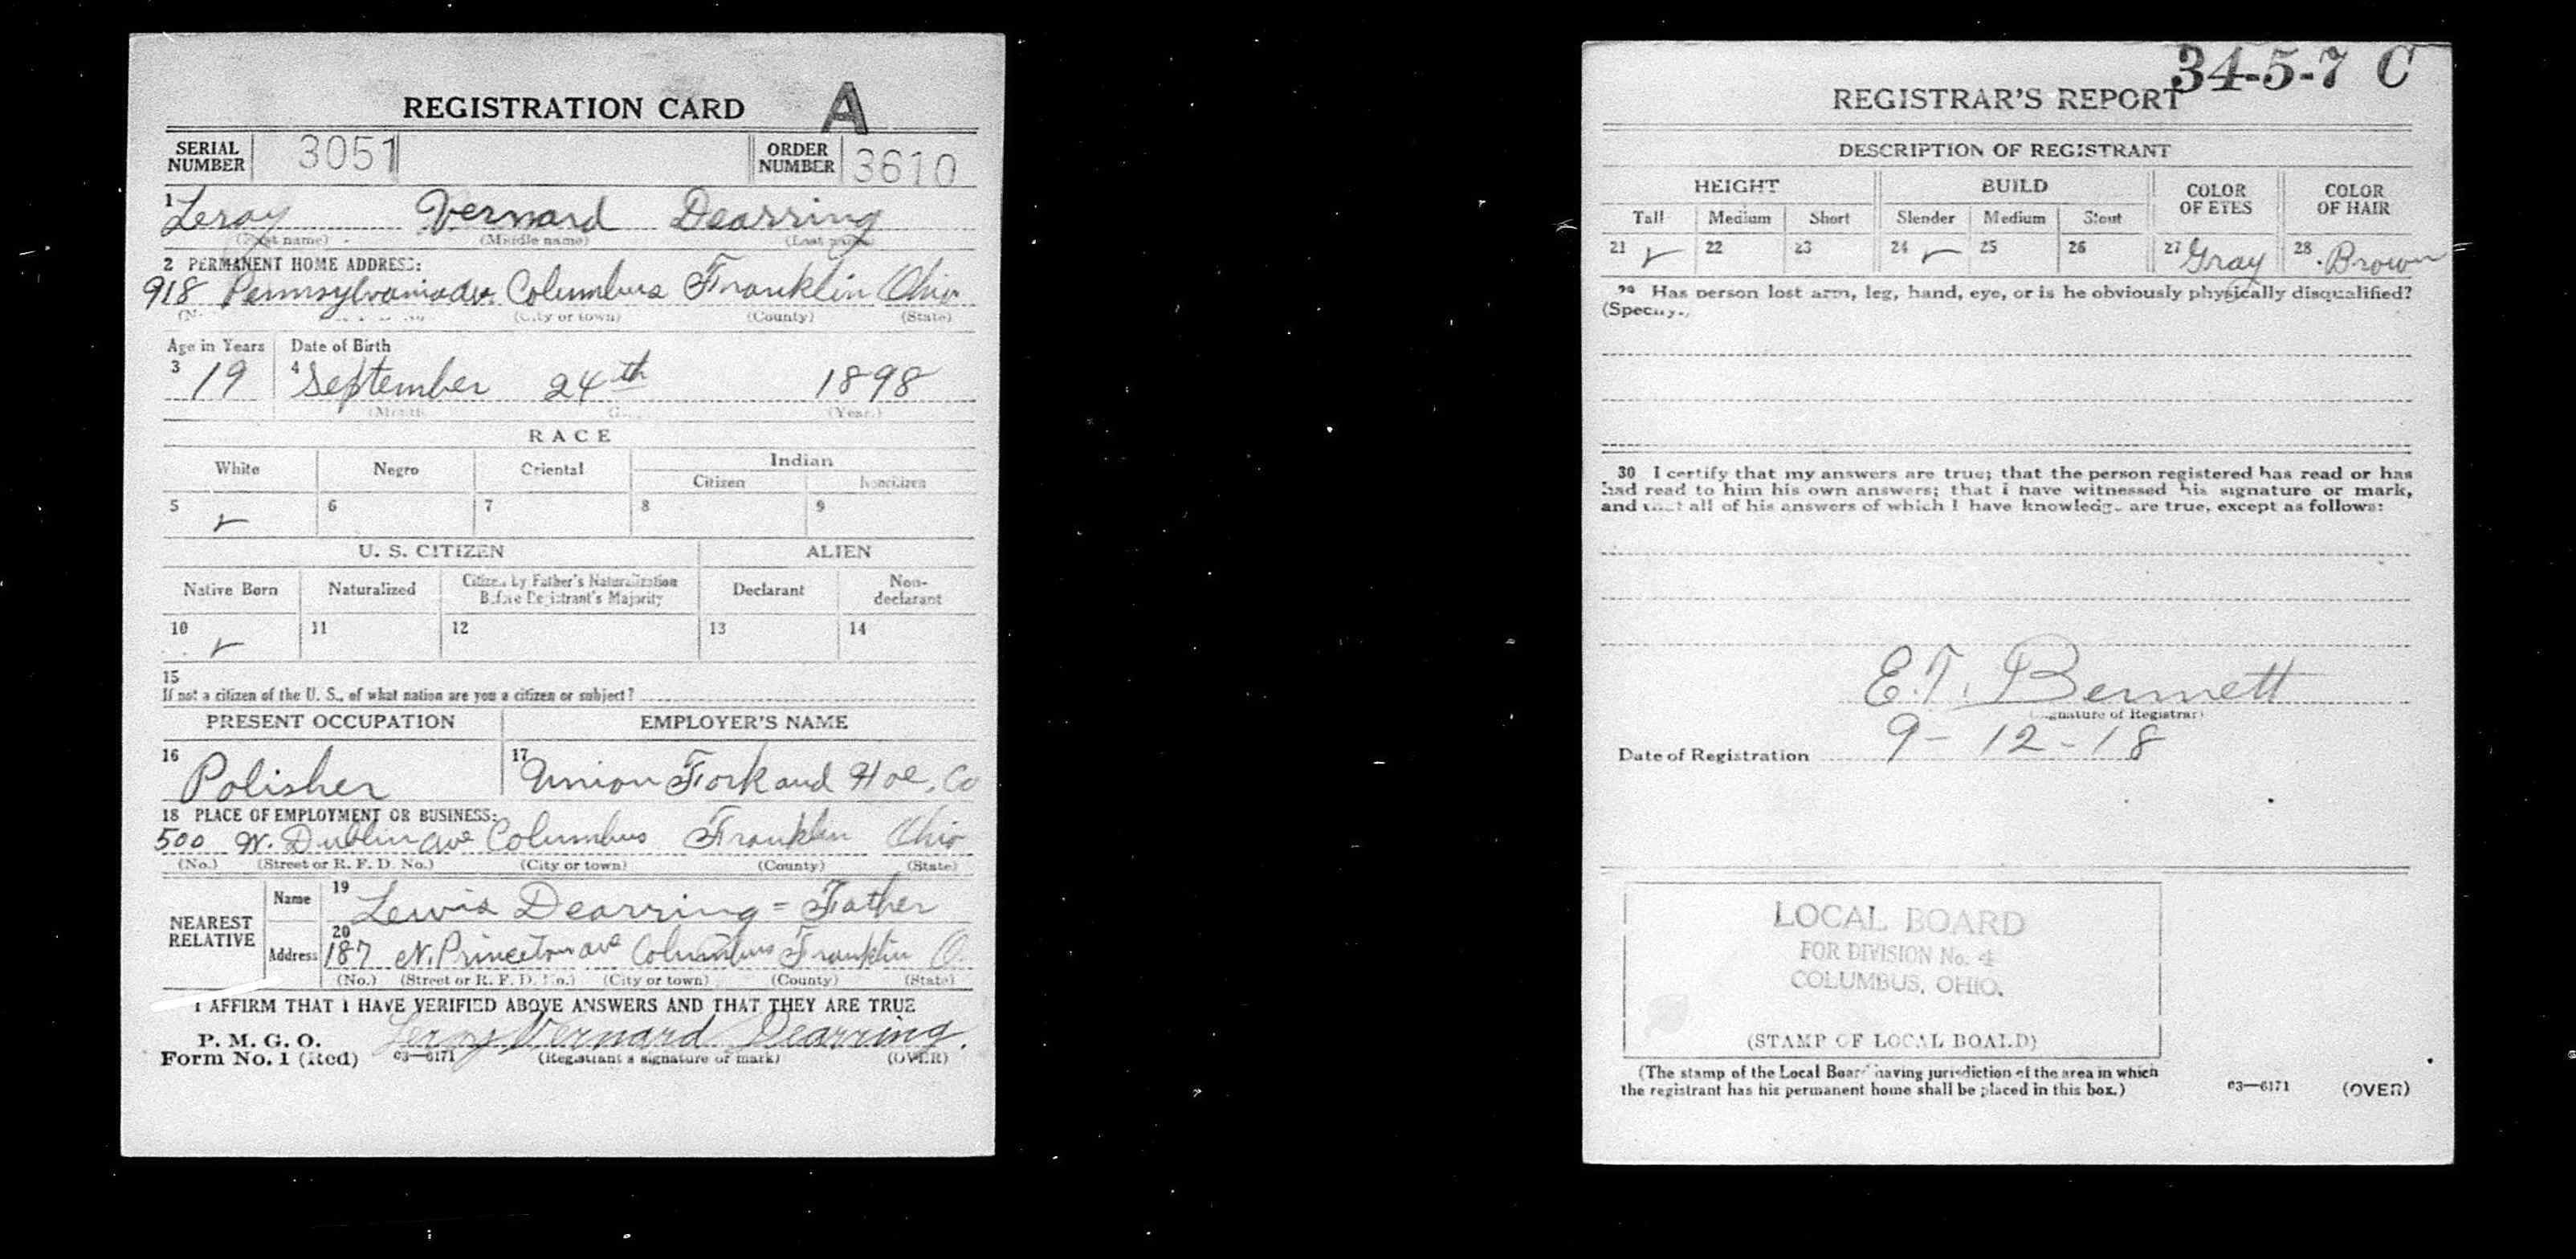 REGISTRATION CARD A
SERIAL NUMBER 3051 ORDER NUMBER 3610
1 Leroy Vernard Dearring
(First name) (Middle name) (Last name)
2 PERMANENT HOME ADDRESS:
918 Pennsylvania av. Columbus Franklin Ohio
(City or town) (County) (State)
Age in Years Date of Birth
3 19 4 September 24th 1898
(Month) (Year)
RACE
White Negro Oriental Indian
Citizen Noncitizen
5 6 7 8 9
U. S. CITIZEN ALIEN
Native Born Naturalized Citizen by Father's Naturalization Before Registrant's Majority Declarant Non-declarant
10 11 12 13 14
15
If not a citizen of the U. S., of what nation are you a citizen or subject?
PRESENT OCCUPATION EMPLOYER'S NAME
16 Polisher 17 Union Fork and Hoe, Co
18 PLACE OF EMPLOYMENT OR BUSINESS:
500 W. Dublin ave Columbus Franklin Ohio
(No.) (Street or R. F. D. No.) (City or town) (County) (State)
NEAREST RELATIVE Name 19 Lewis Dearring = Father
Address 20 187 N. Princeton ave Columbus Franklin O.
(No.) (Street or R. F. D. No.) (City or town) (County) (State)
I AFFIRM THAT I HAVE VERIFIED ABOVE ANSWERS AND THAT THEY ARE TRUE
P. M. G. O.
Form No. 1 (Red) 03—6171 Leroy Vernard Dearring.
(Registrant's signature or mark) (OVER)
34-5-7 C
REGISTRAR'S REPORT
DESCRIPTION OF REGISTRANT
HEIGHT BUILD COLOR OF EYES COLOR OF HAIR
Tall Medium Short Slender Medium Stout
21 22 23 24 25 26 27 Gray 28 Brown
29 Has person lost arm, leg, hand, eye, or is he obviously physically disqualified?
(Specify.)
30 I certify that my answers are true; that the person registered has read or has
had read to him his own answers; that I have witnessed his signature or mark,
and that all of his answers of which I have knowledge are true, except as follows:
E.T. Bennett
(Signature of Registrar)
Date of Registration 9-12-18
LOCAL BOARD
FOR DIVISION No. 4
COLUMBUS, OHIO.
(STAMP OF LOCAL BOARD)
(The stamp of the Local Board having jurisdiction of the area in which
the registrant has his permanent home shall be placed in this box.)
03—6171 (OVER)